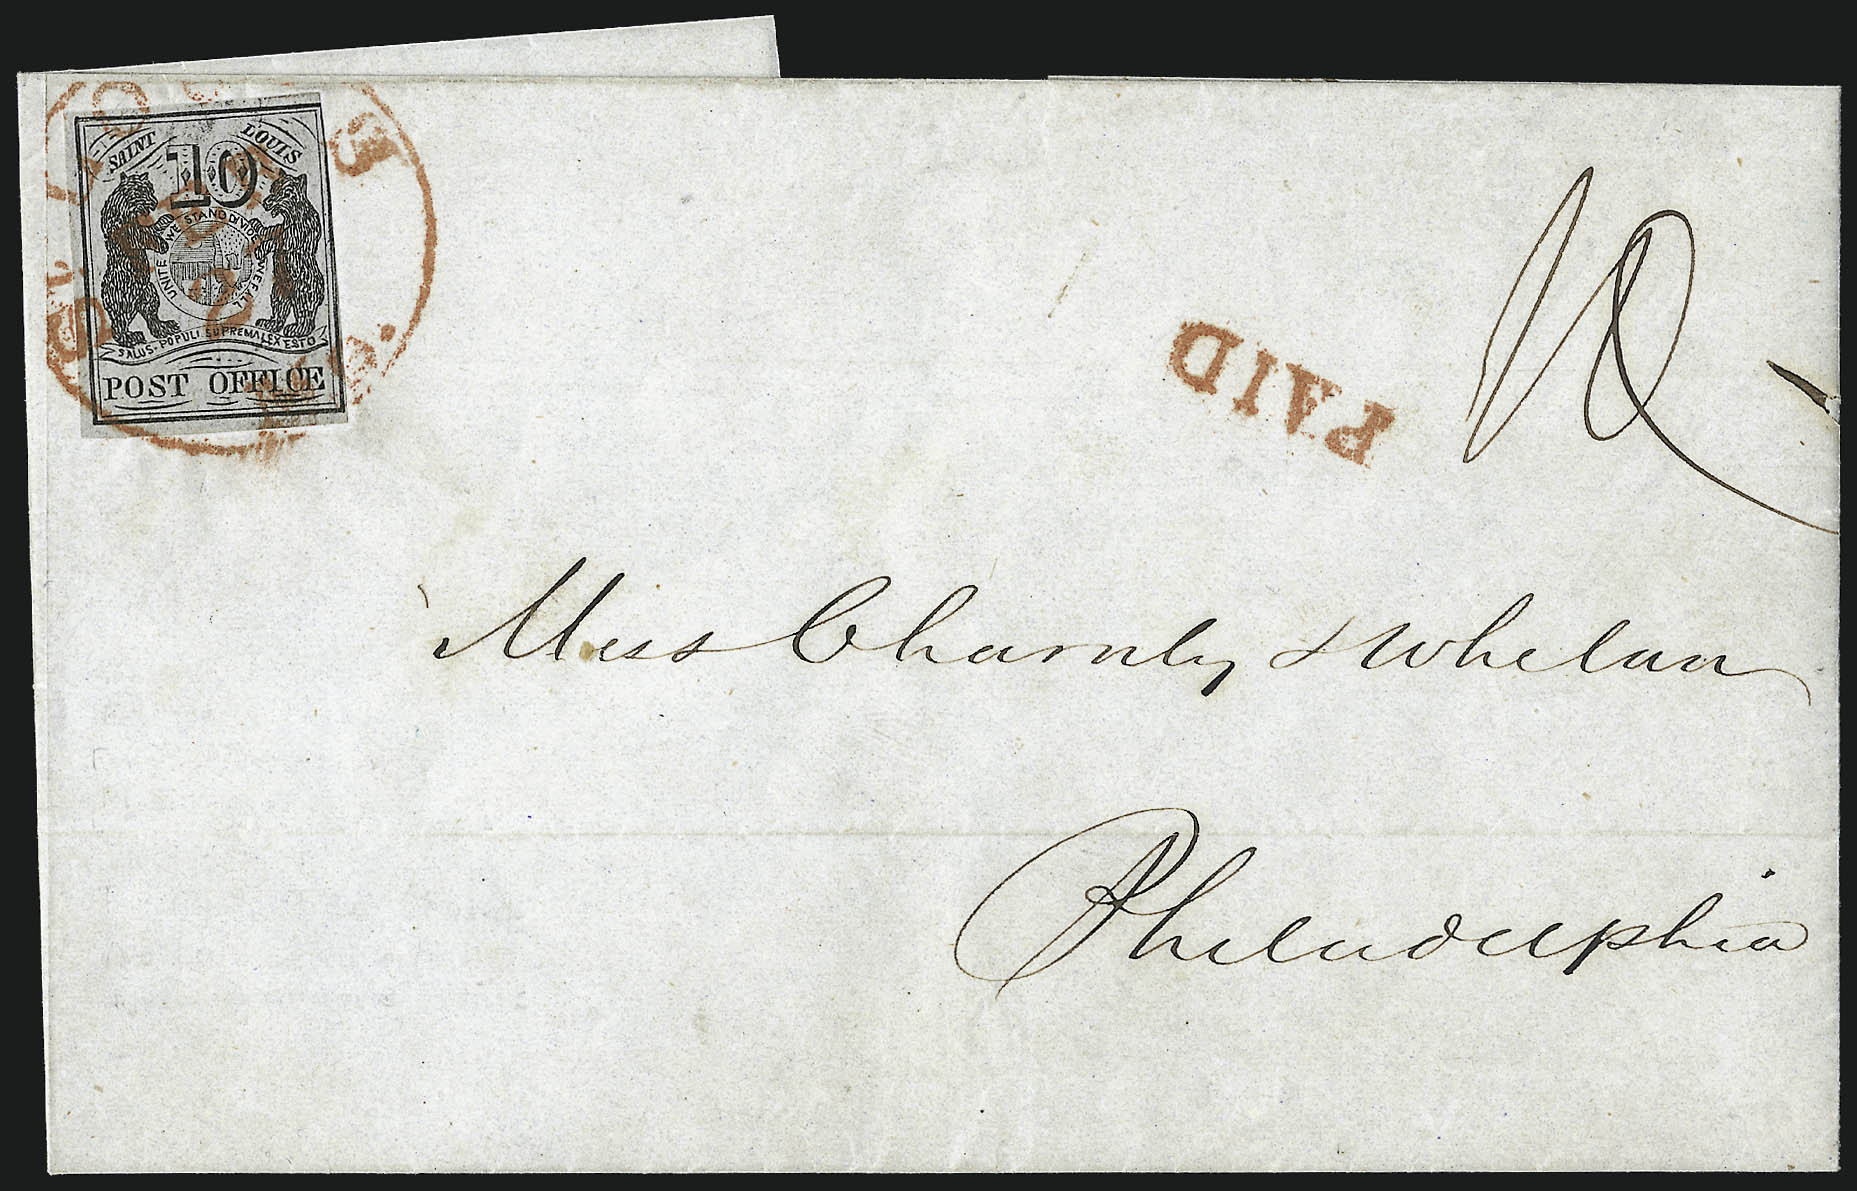 SAINT LOUIS
10
UNITED WE STAND DIVIDED WE FALL
SALUS · POPULI SUPREMA LEX ESTO
POST OFFICE
PAID
10
Mess Charnley & Whelan
Philadelphia